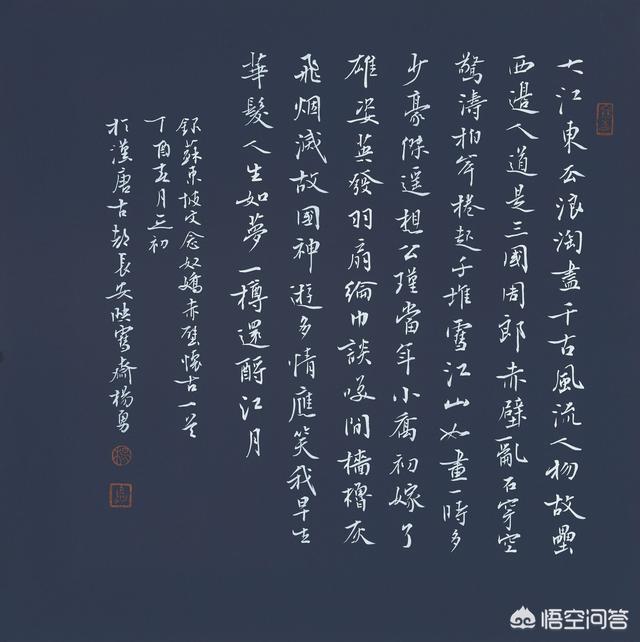 大江東去浪淘盡千古風流人物故壘
西邊人道是三國周郎赤壁亂石穿空
驚濤拍岸捲起千堆雪江山如畫一時多
少豪傑遥想公瑾當年小喬初嫁了
雄姿英發羽扇綸巾談笑間檣櫓灰
飛烟滅故國神遊多情應笑我早生
華髮人生如夢一樽還酹江月
錄蘇東坡念奴嬌赤壁懷古一首
丁酉五月之初
於漢唐古都長安齋楊勇
悟空问答